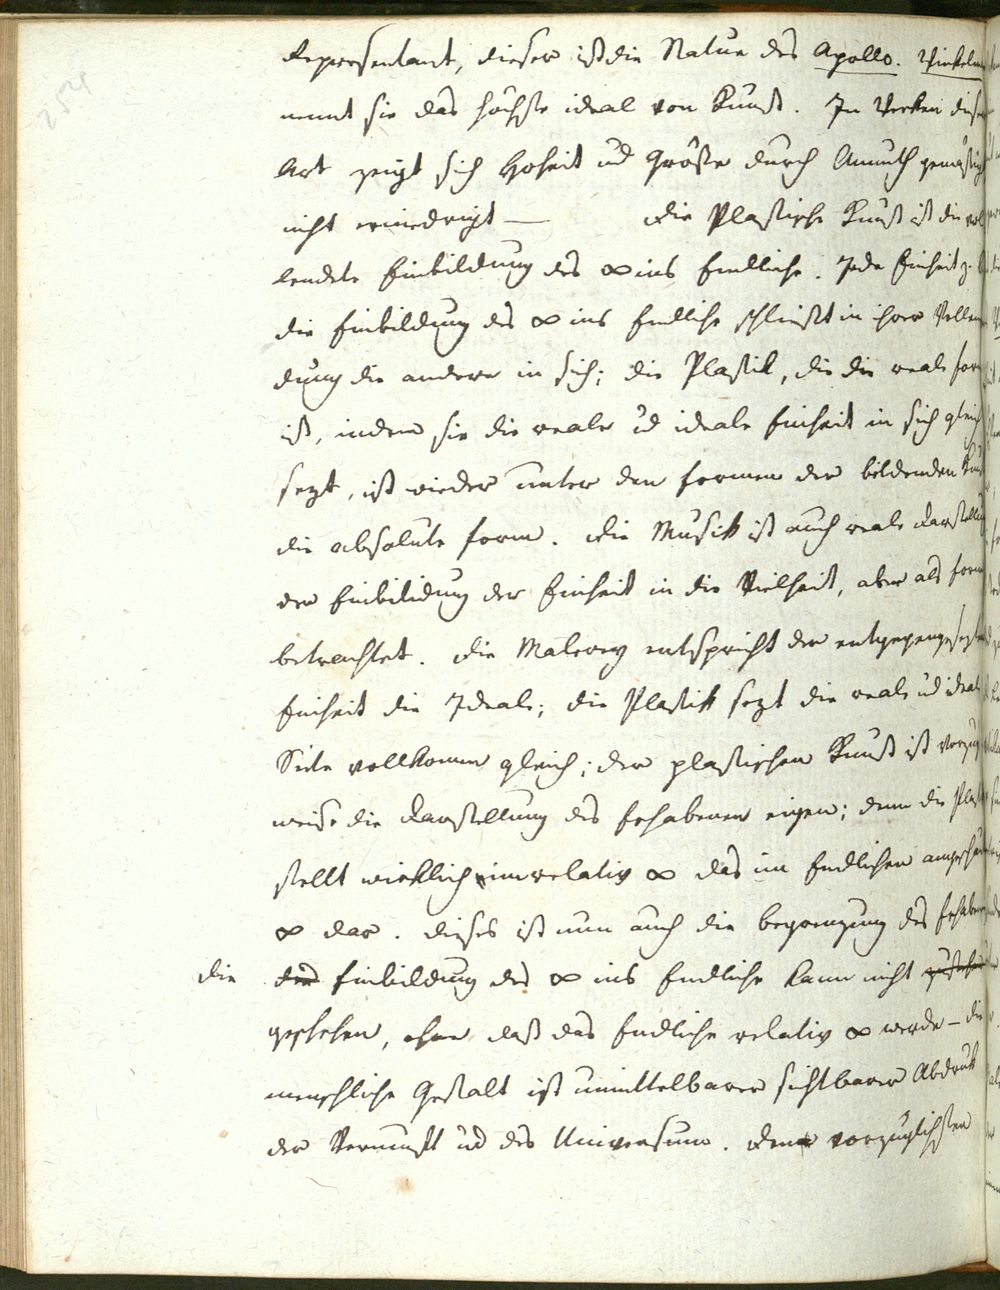 254
Representant, dieser ist die Natur des Apollo. Winkelm
nennt sie das höchste ideal von Kunst. In Werken dieser
Art zeigt sich Hoheit ud Größe durch Anmuth gemäßigt
nicht erniedrigt — Die Plastische Kunst ist die vol
lendete Einbildung des ∞ ins Endliche. Jede Einheit z. B
die Einbildung des ∞ ins Endliche schließt in ihrer Vollen
dung die andere in sich; die Plastik, die die reale form
ist, indem sie die reale ud ideale Einheit in sich gleich
sezt, ist wieder unter den formen der bildenden Kunst
die absolute form. Die Musik ist auch reale Darstellung
der Einbildung der Einheit in die Vielheit, aber als form
betrachtet. Die Malerey entspricht der entgegengesezten
Einheit die Ideale; die Plastik sezt die reale ud ideale
Seite vollkomen gleich; der plastischen Kunst ist vorzugs
weise die Darstellung des Erhabenen eigen; denn die Plastik
stellt wirklich im relativ ∞ das im Endlichen angeschaute
∞ dar. Dieses ist nun auch die begrenzung des Erhabenen
die Einbildung des ∞ ins Endliche kann nicht
geschehen, ohne daß das Endliche relativ ∞ werde – die
menschliche Gestalt ist unmittelbarer sichtbarer Abdruck
der Vernunft ud des Universum. Den vorzüglichsten